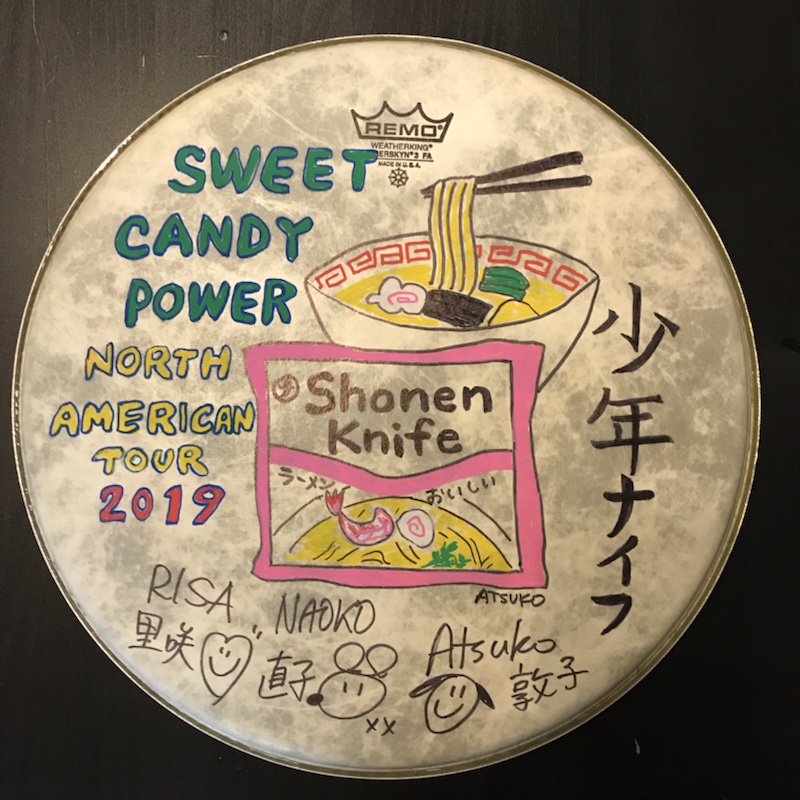 REMO
WEATHERKING®
ERSKYN®3 FA
MADE IN U.S.A.
SWEET
CANDY
POWER
NORTH
AMERICAN
TOUR
2019
Shonen
Knife
ラーメン
おいしい
ATSUKO
少年ナイフ
RISA
里咲
NAOKO
直子
xx
Atsuko
敦子